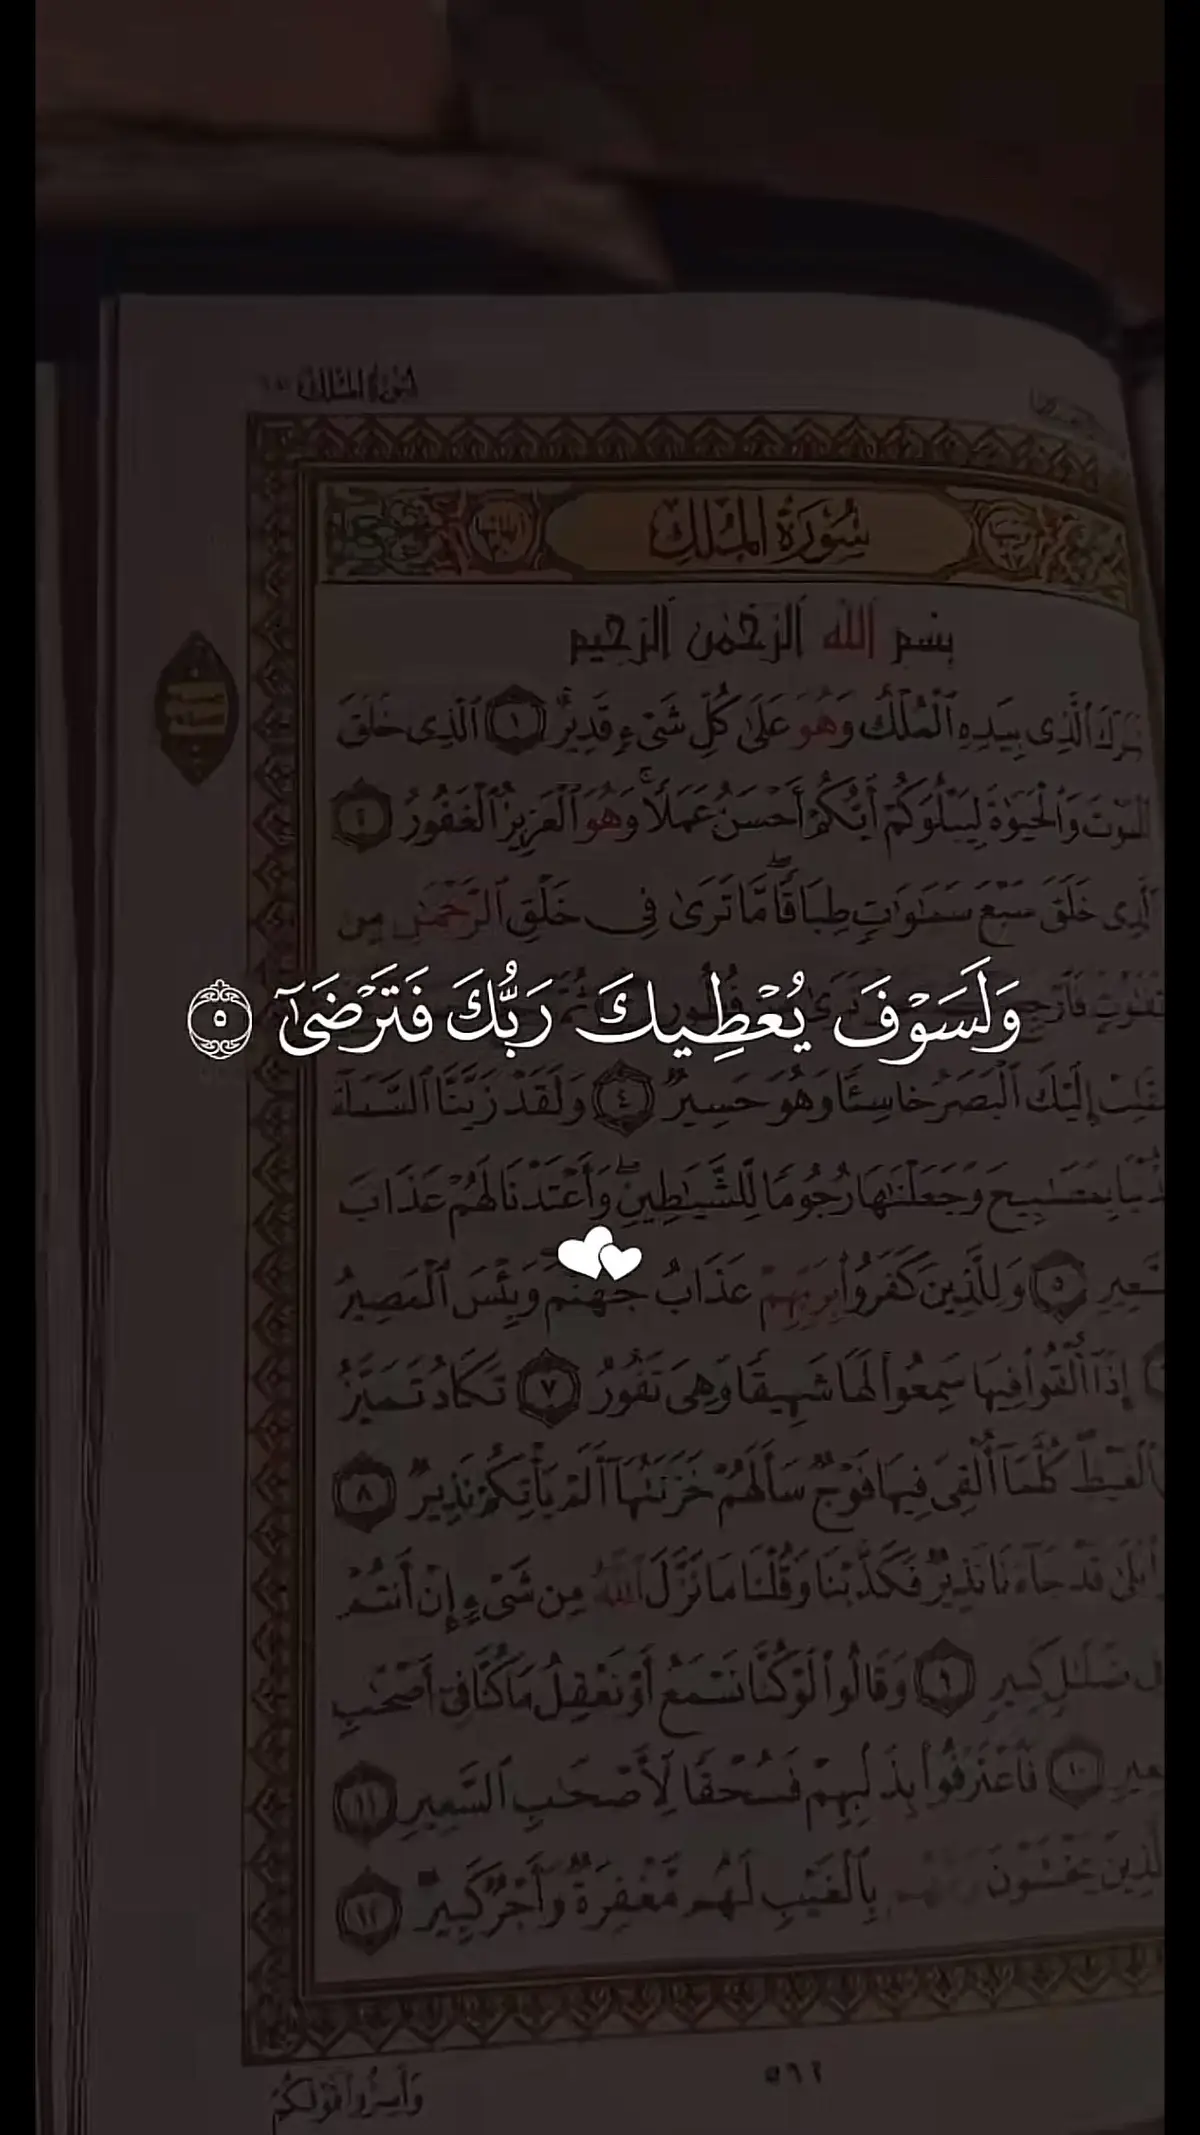 سُورَةُ المُلْكِ
سُورَةُ المُلْكِ
بِسْمِ اللهِ الرَّحْمٰنِ الرَّحِيمِ
تَبَٰرَكَ ٱلَّذِى بِيَدِهِ ٱلْمُلْكُ وَهُوَ عَلَىٰ كُلِّ شَىْءٍ قَدِيرٌ ١ ٱلَّذِى خَلَقَ
ٱلْمَوْتَ وَٱلْحَيَوٰةَ لِيَبْلُوَكُمْ أَيُّكُمْ أَحْسَنُ عَمَلًا ۚ وَهُوَ ٱلْعَزِيزُ ٱلْغَفُورُ ٢
ٱلَّذِى خَلَقَ سَبْعَ سَمَٰوَٰتٍ طِبَاقًا ۖ مَّا تَرَىٰ فِى خَلْقِ ٱلرَّحْمَٰنِ مِن
وَلَسَوْفَ يُعْطِيكَ رَبُّكَ فَتَرْضَىٰٓ ٥
يَنقَلِبْ إِلَيْكَ ٱلْبَصَرُ خَاسِئًا وَهُوَ حَسِيرٌ ٤ وَلَقَدْ زَيَّنَّا ٱلسَّمَآءَ
ٱلدُّنْيَا بِمَصَٰبِيحَ وَجَعَلْنَٰهَا رُجُومًا لِّلشَّيَٰطِينِ ۖ وَأَعْتَدْنَا لَهُمْ عَذَابَ
ٱلسَّعِيرِ ٥ وَلِلَّذِينَ كَفَرُوا۟ بِرَبِّهِمْ عَذَابُ جَهَنَّمَ ۖ وَبِئْسَ ٱلْمَصِيرُ
إِذَآ أُلْقُوا۟ فِيهَا سَمِعُوا۟ لَهَا شَهِيقًا وَهِىَ تَفُورُ ٧ تَكَادُ تَمَيَّزُ
مِنَ ٱلْغَيْظِ ۖ كُلَّمَآ أُلْقِىَ فِيهَا فَوْجٌ سَأَلَهُمْ خَزَنَتُهَآ أَلَمْ يَأْتِكُمْ نَذِيرٌ ٨
قَالُوا۟ بَلَىٰ قَدْ جَآءَنَا نَذِيرٌ فَكَذَّبْنَا وَقُلْنَا مَا نَزَّلَ ٱللَّهُ مِن شَىْءٍ إِنْ أَنتُمْ
فِى ضَلَٰلٍ كَبِيرٍ ٩ وَقَالُوا۟ لَوْ كُنَّا نَسْمَعُ أَوْ نَعْقِلُ مَا كُنَّا فِىٓ أَصْحَٰبِ
ٱلسَّعِيرِ ١٠ فَٱعْتَرَفُوا۟ بِذَنۢبِهِمْ فَسُحْقًا لِّأَصْحَٰبِ ٱلسَّعِيرِ ١١
ٱلَّذِينَ يَخْشَوْنَ رَبَّهُم بِٱلْغَيْبِ لَهُم مَّغْفِرَةٌ وَأَجْرٌ كَبِيرٌ ١٢
٥٦٢
وَأَسِرُّوا۟ قَوْلَكُمْ